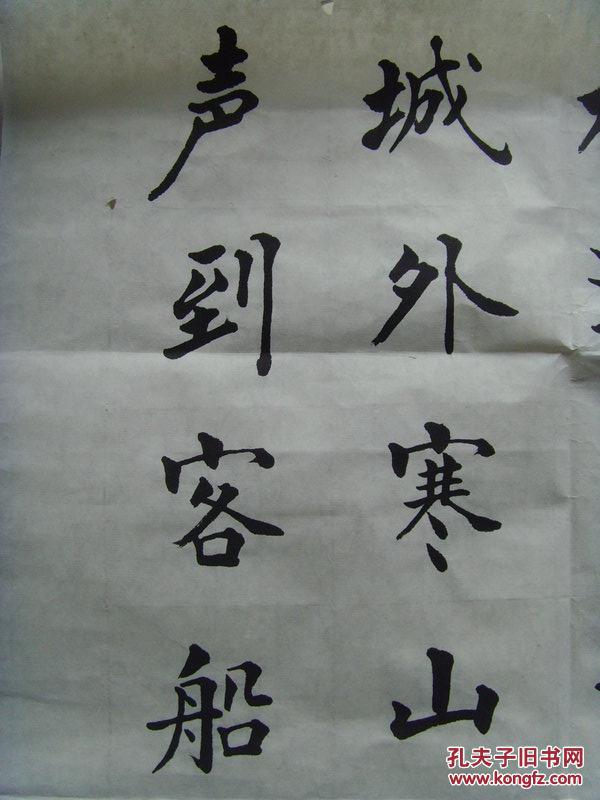 城外寒山
声到客船
孔夫子旧书网
www.kongfz.com